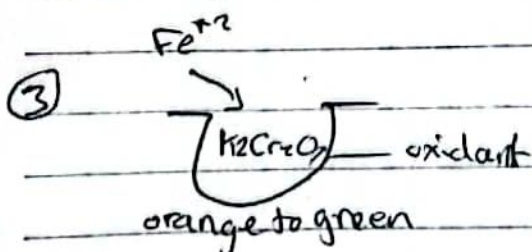 Fe⁺²
③
K2Cr2O7 oxidant
orange to green